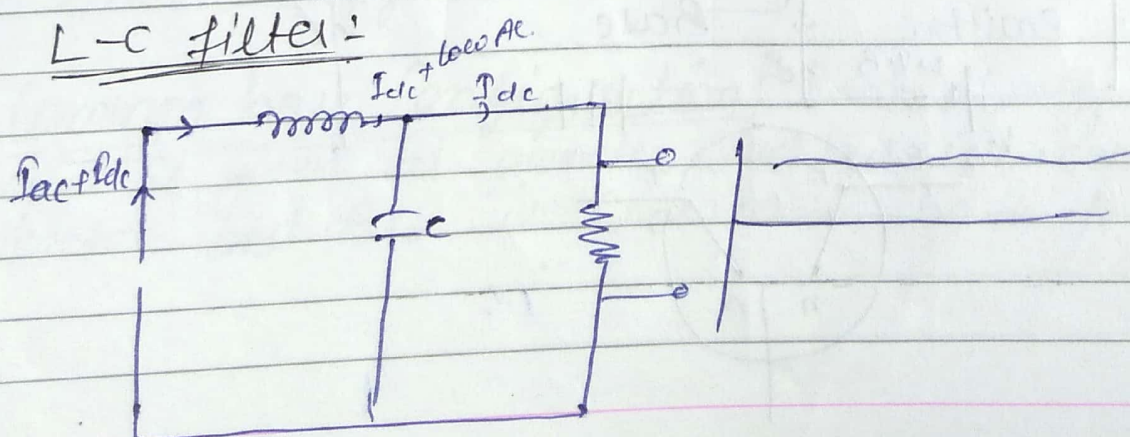 L-C filter:
Idc + low AC.
Idc
Iac+Idc
C